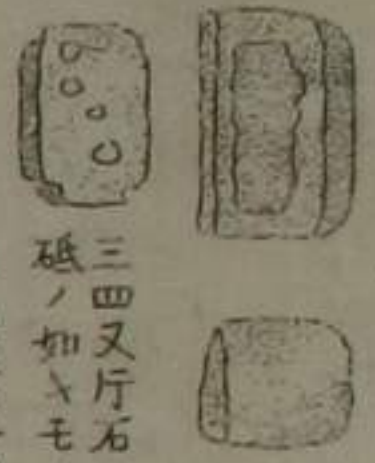 三四又片石
砥ノ如キモ